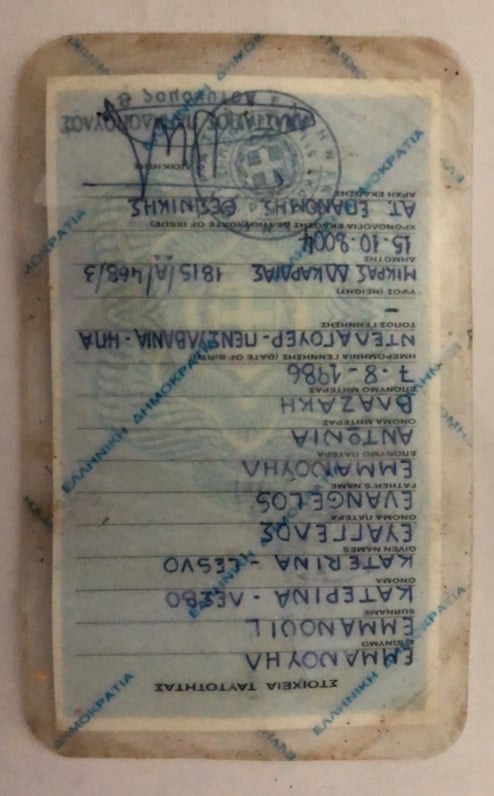 ΣΤΟΙΧΕΙΑ ΤΑΥΤΟΤΗΤΑΣ
ΕΠΩΝΥΜΟ
ΕΜΜΑΝΟΥΗΛ
SURNAME
EMMANOUIL
ΟΝΟΜΑ
ΚΑΤΕΡΙΝΑ - ΛΕΣΒΟ
GIVEN NAMES
KATERINA - LESVO
ΟΝΟΜΑ ΠΑΤΕΡΑ
ΕΥΑΓΓΕΛΟΣ
FATHER'S NAME
EVANGELOS
ΕΠΩΝΥΜΟ ΠΑΤΕΡΑ
ΕΜΜΑΝΟΥΗΛ
ΟΝΟΜΑ ΜΗΤΕΡΑΣ
ΑΝΤΩΝΙΑ
ΕΠΩΝΥΜΟ ΜΗΤΕΡΑΣ
ΒΛΑΖΑΚΗ
ΗΜΕΡΟΜΗΝΙΑ ΓΕΝΝΗΣΗΣ (DATE OF BIRTH)
7-8-1986
ΤΟΠΟΣ ΓΕΝΝΗΣΗΣ
ΝΤΕΛΑΓΟΥΕΡ-ΠΕΝΣΥΛΒΑΝΙΑ-ΗΠΑ
ΥΨΟΣ (HEIGHT)
-
ΔΗΜΟΤΗΣ
ΜΙΚΡΑΣ ΔΑΚΑΡΔΙΑΣ 1815/Α/468/3
ΧΡΟΝΟΛΟΓΙΑ ΕΚΔΟΣΕΩΣ ΔΕΛΤΙΟΥ (DATE OF ISSUE)
15-10-2004
ΑΡΧΗ ΕΚΔΟΣΗΣ
ΑΤ. ΕΠΑΝΟΜΗΣ ΘΕΣ/ΝΙΚΗΣ
Ο ΔΙΟΙΚΗΤΗΣ
ΕΛΛΗΝΙΚΗ ΔΗΜΟΚΡΑΤΙΑ